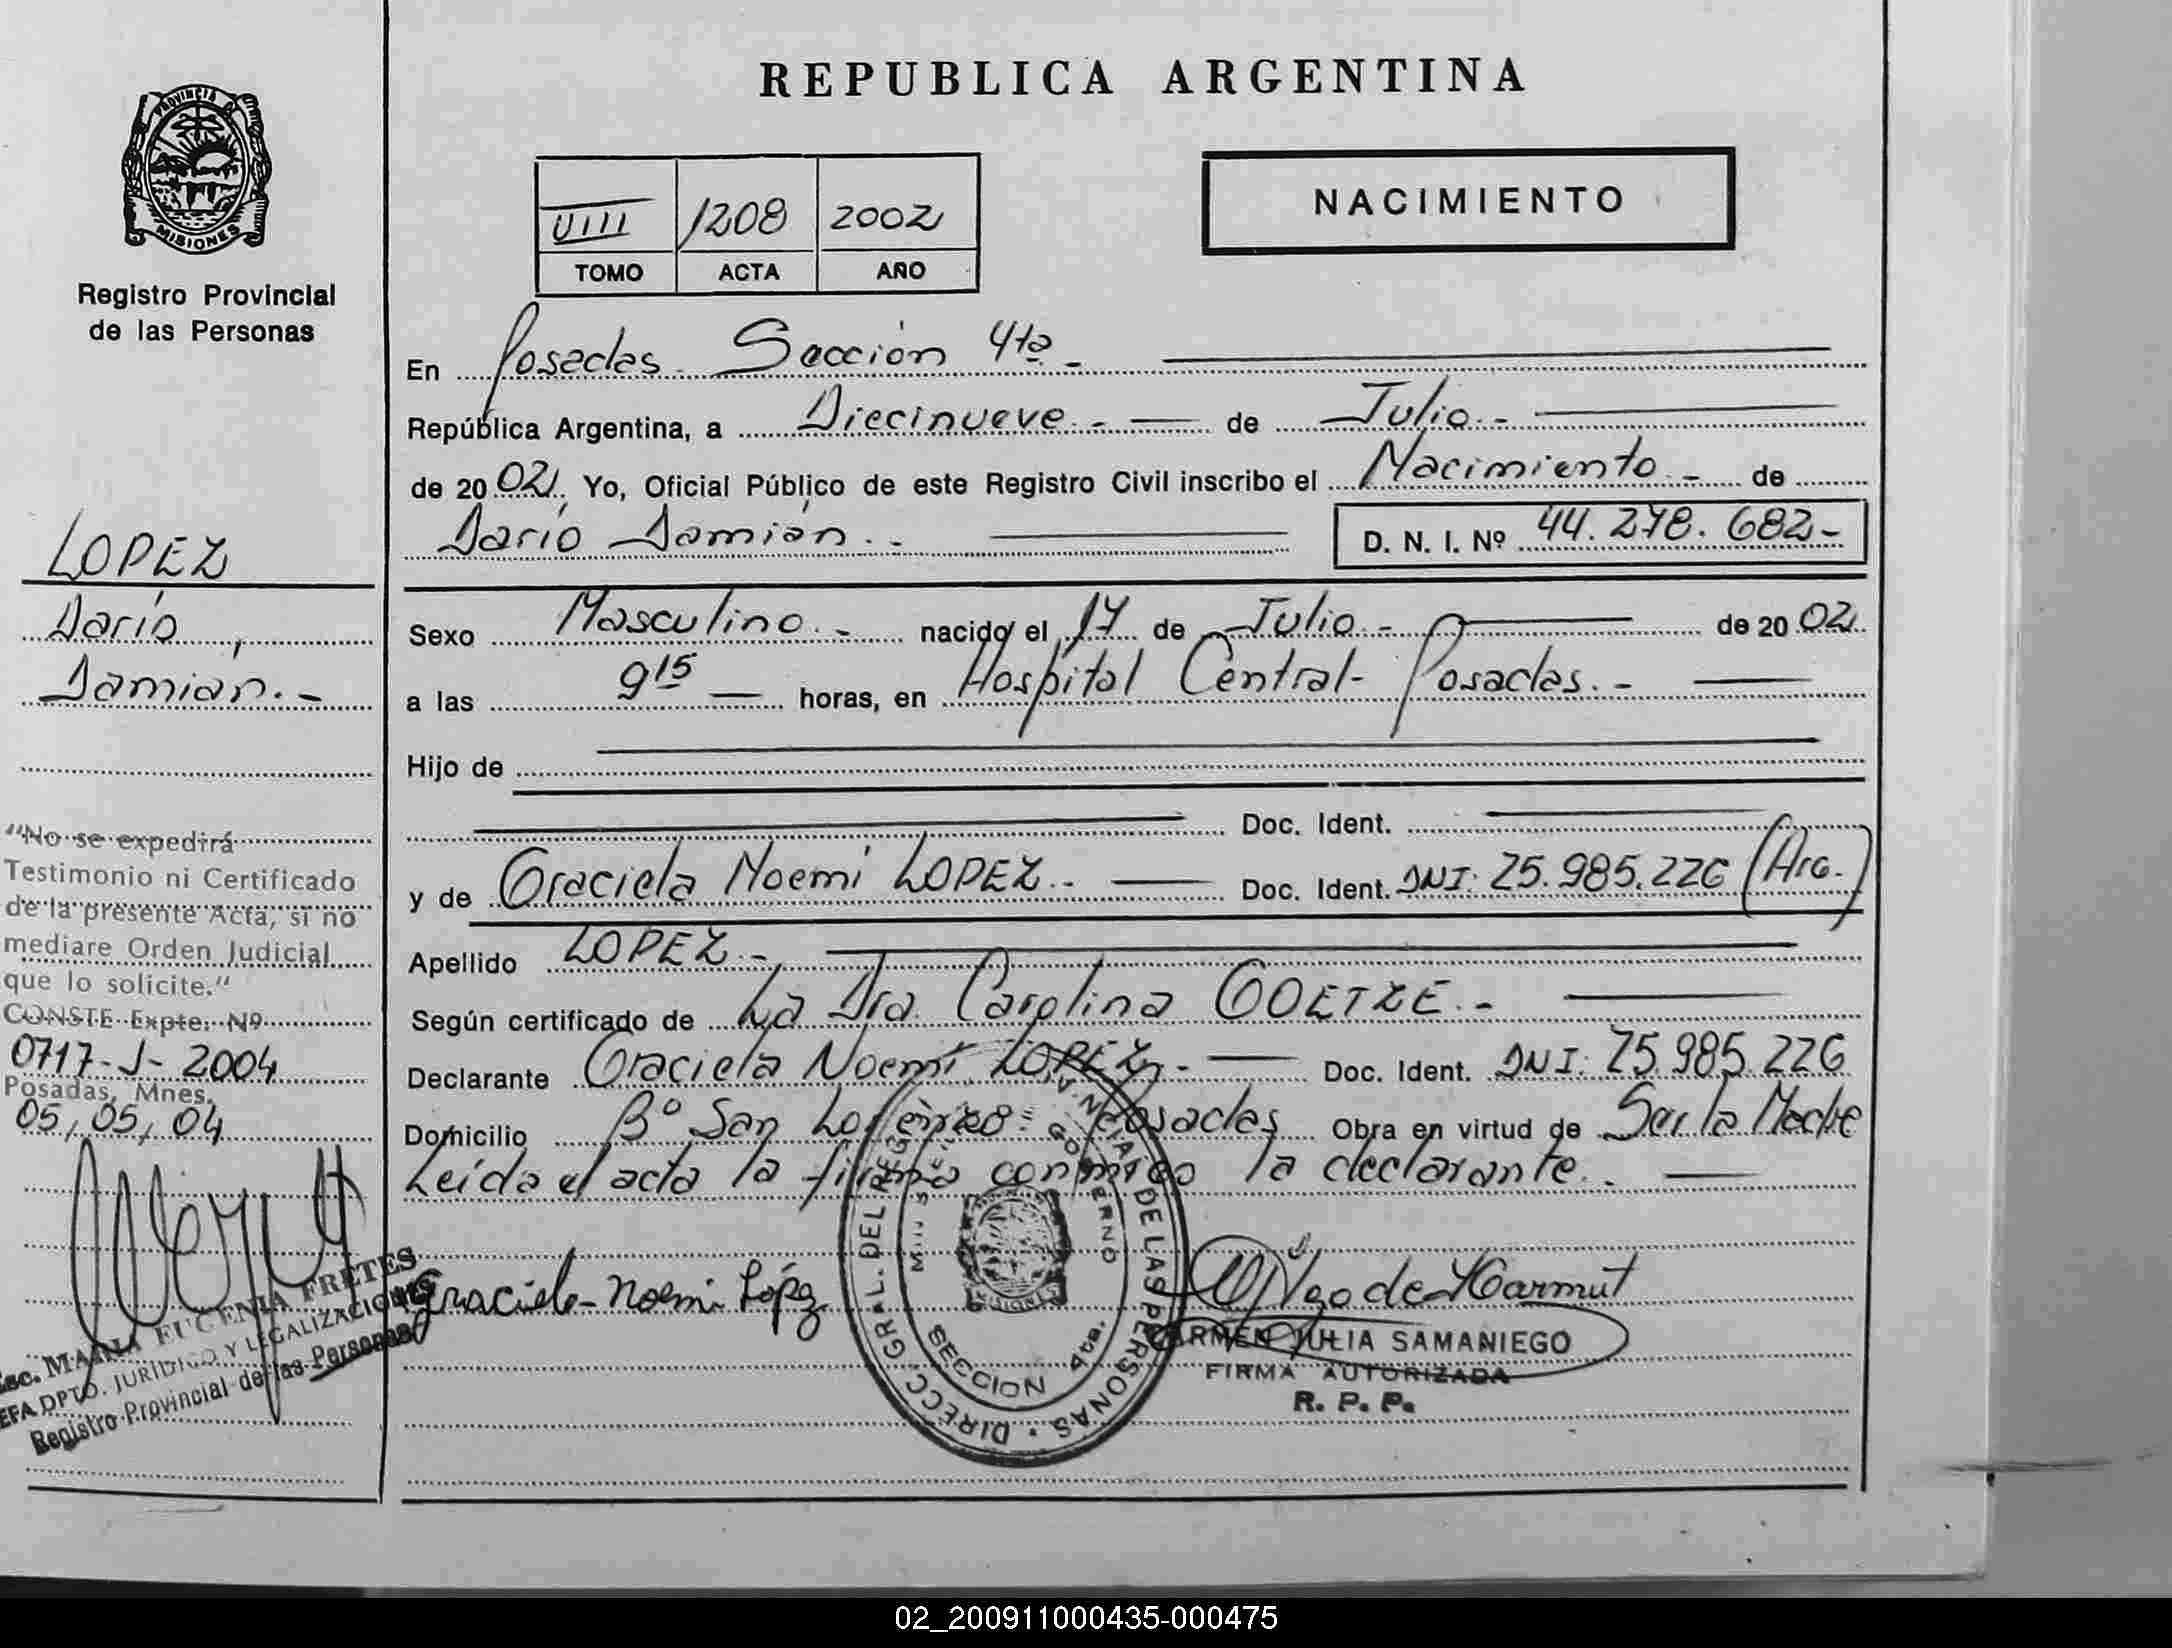 REPUBLICA ARGENTINA
PROVINCIA D
MISIONES
Registro Provincial
de las Personas
VIII 1208 2002
TOMO ACTA AÑO
NACIMIENTO
En Posadas Sección 4ta.-
República Argentina, a Diecinueve.- de Julio.-
de 2002. Yo, Oficial Público de este Registro Civil inscribo el Nacimiento.- de
Darío Damián.-
D. N. I. Nº 44.278.682-
LOPEZ
Darío,
Damián.-
Sexo Masculino.- nacido el 17 de Julio.- de 2002.
a las 9 15 horas, en Hospital Central- Posadas.-
Hijo de
Doc. Ident.
y de Graciela Noemí LOPEZ.- Doc. Ident. DNI: 25.985.226 (Arg.)
Apellido LOPEZ.-
Según certificado de La Dra. Carolina GOETZE.-
Declarante Graciela Noemí LOPEZ.- Doc. Ident. DNI: 25.985.226
Domicilio Bº San Lorenzo: Posadas Obra en virtud de Ser la Madre
Leída el acta la firma conmigo la declarante..
"No se expedirá
Testimonio ni Certificado
de la presente Acta, si no
mediare Orden Judicial
que lo solicite."
CONSTE Expte. Nº
0717-J-2004
Posadas, Mnes.
05, 05, 04
Esc. MARIA EUGENIA FRETES
JEFA DPTO. JURIDICO Y LEGALIZACIONES
Registro Provincial de las Personas
Graciela Noemi López
DIRECC. GRAL. DEL REG. PROVINCIAL DE LAS PERSONAS
GOBIERNO
MISIONES
SECCION 4ta.
CARMEN JULIA SAMANIEGO
FIRMA AUTORIZADA
R. P. P.
02_200911000435-000475